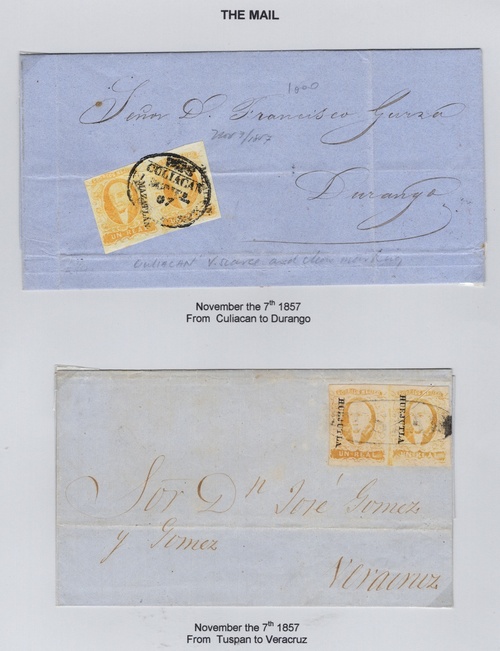 THE MAIL
1000
Señor D. Francisco Gurza
Nov 7/1857
Durango
CULIACAN
MAZATLAN
07
UN REAL
CULIACAN V. scarce and clear marking
November the 7th 1857
From Culiacan to Durango
HUEJUTLA
HUEJUTLA
UN REAL
UN REAL
Sor Dn José Gomez
y Gomez
Veracruz
November the 7th 1857
From Tuspan to Veracruz